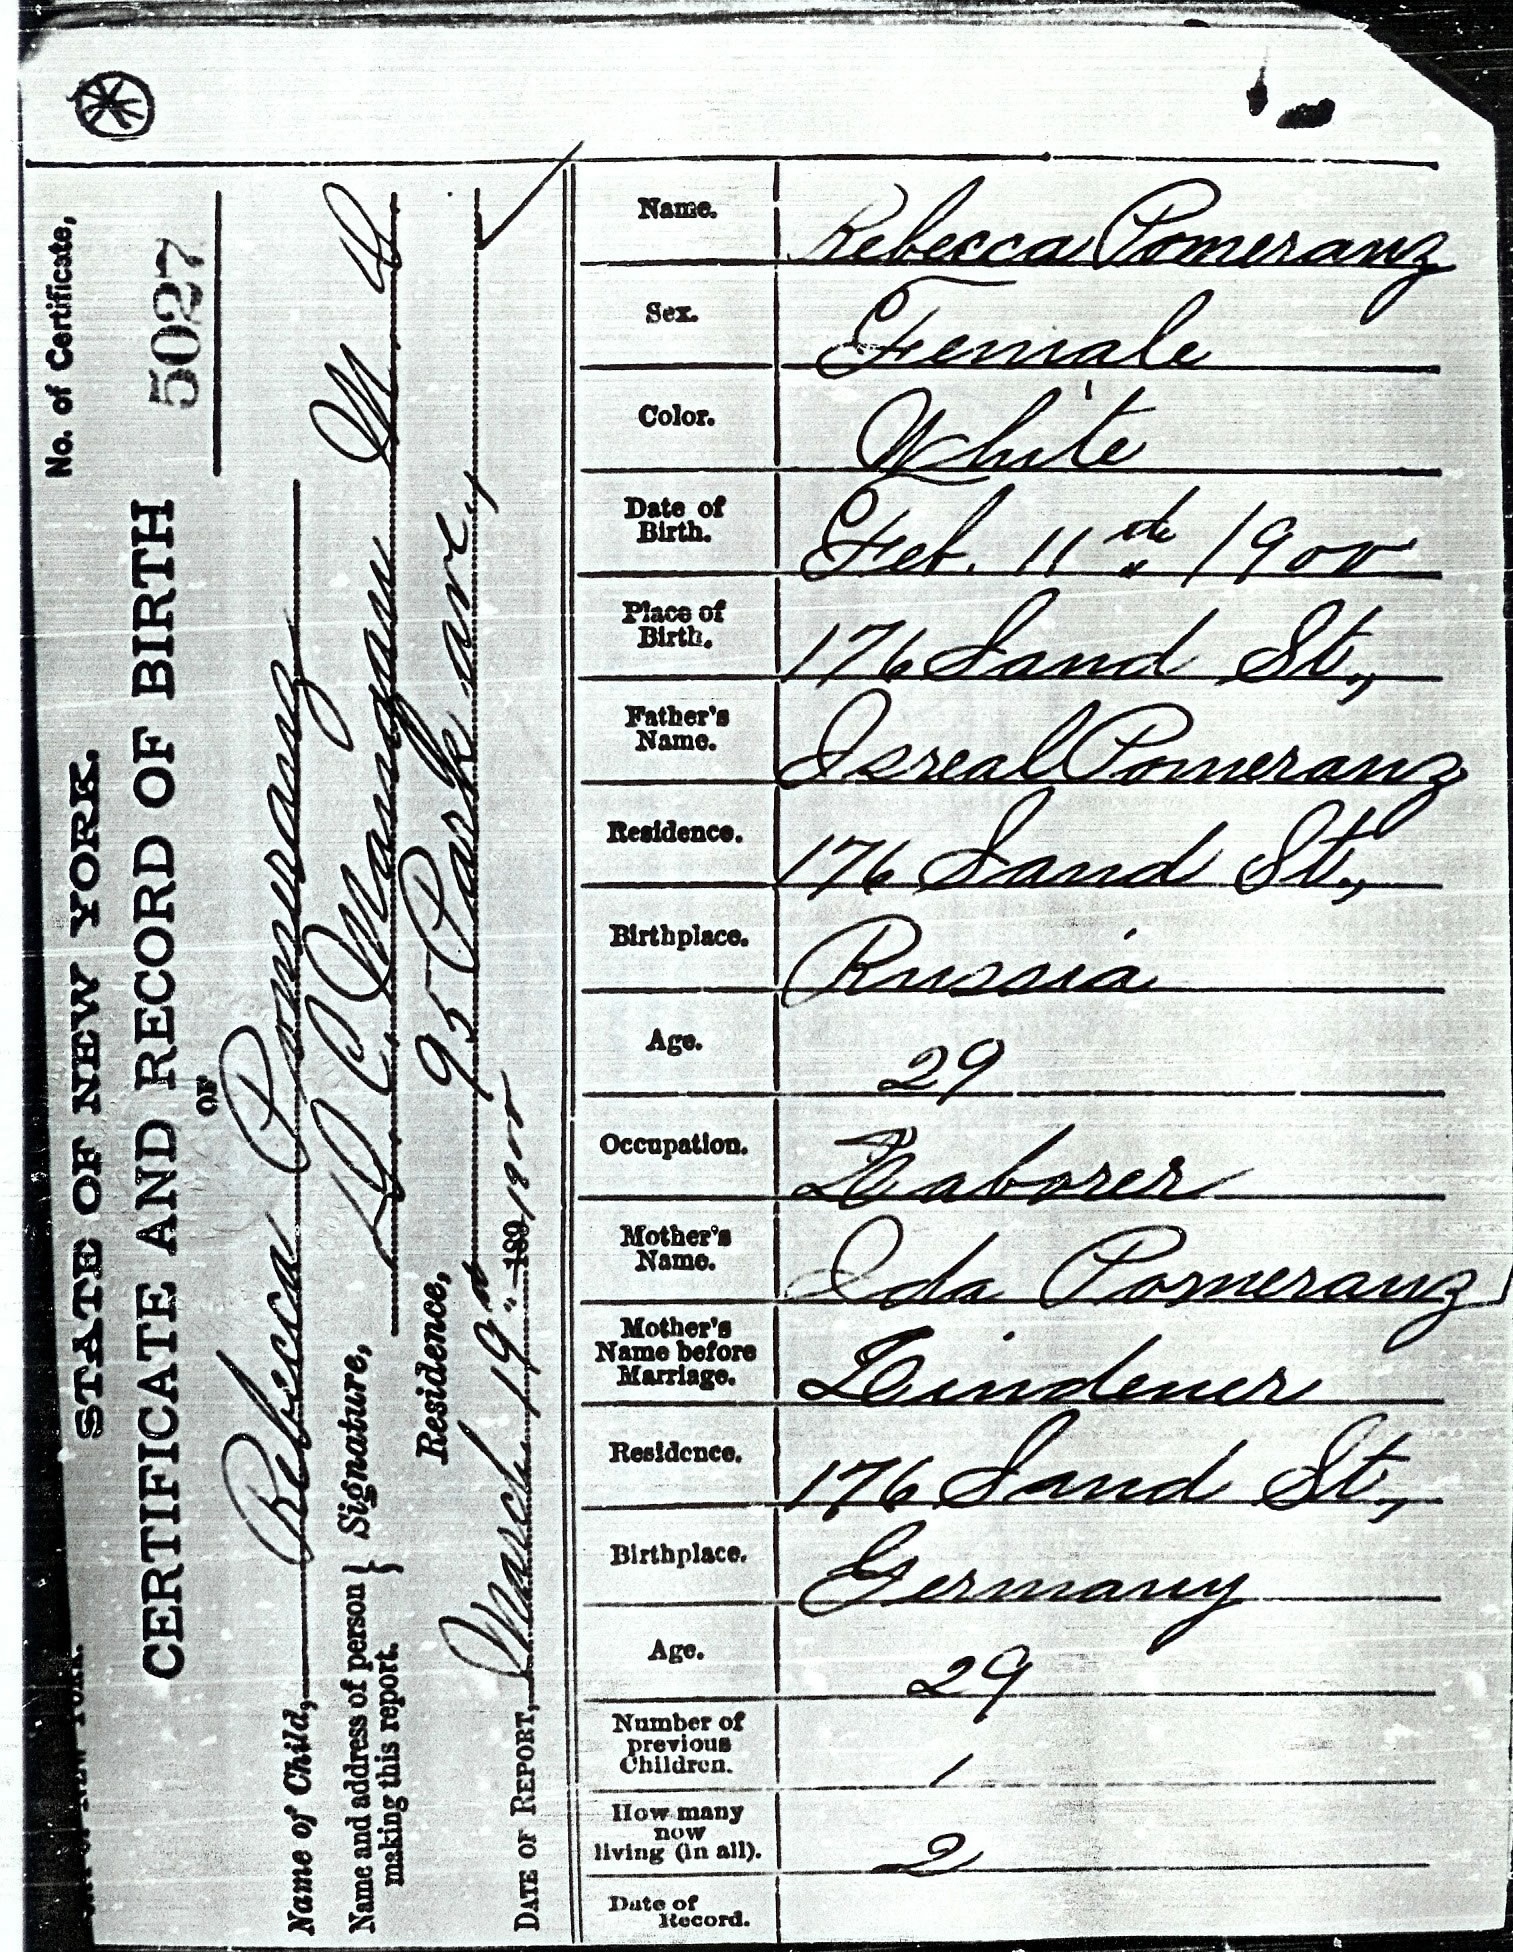 No. of Certificate,
5027
STATE OF NEW YORK.
CERTIFICATE AND RECORD OF BIRTH
OF
Name of Child, Rebecca Pomeranz
Name and address of person making this report.
Signature, D C Mangan M. D
Residence, 95 Park ave,
DATE OF REPORT, March 19 189 1900
Name. Rebecca Pomeranz
Sex. Female
Color. White
Date of Birth. Feb. 11th 1900
Place of Birth. 176 Sand St.,
Father's Name. Isreal Pomeranz
Residence. 176 Sand St.,
Birthplace. Russia
Age. 29
Occupation. Laborer
Mother's Name. Ida Pomeranz
Mother's Name before Marriage. Lindener
Residence. 176 Sand St.,
Birthplace. Germany
Age. 29
Number of previous Children. 1
How many now living (in all). 2
Date of Record.